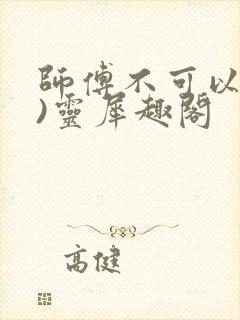 師傅不可以
)靈犀趣閣
高健